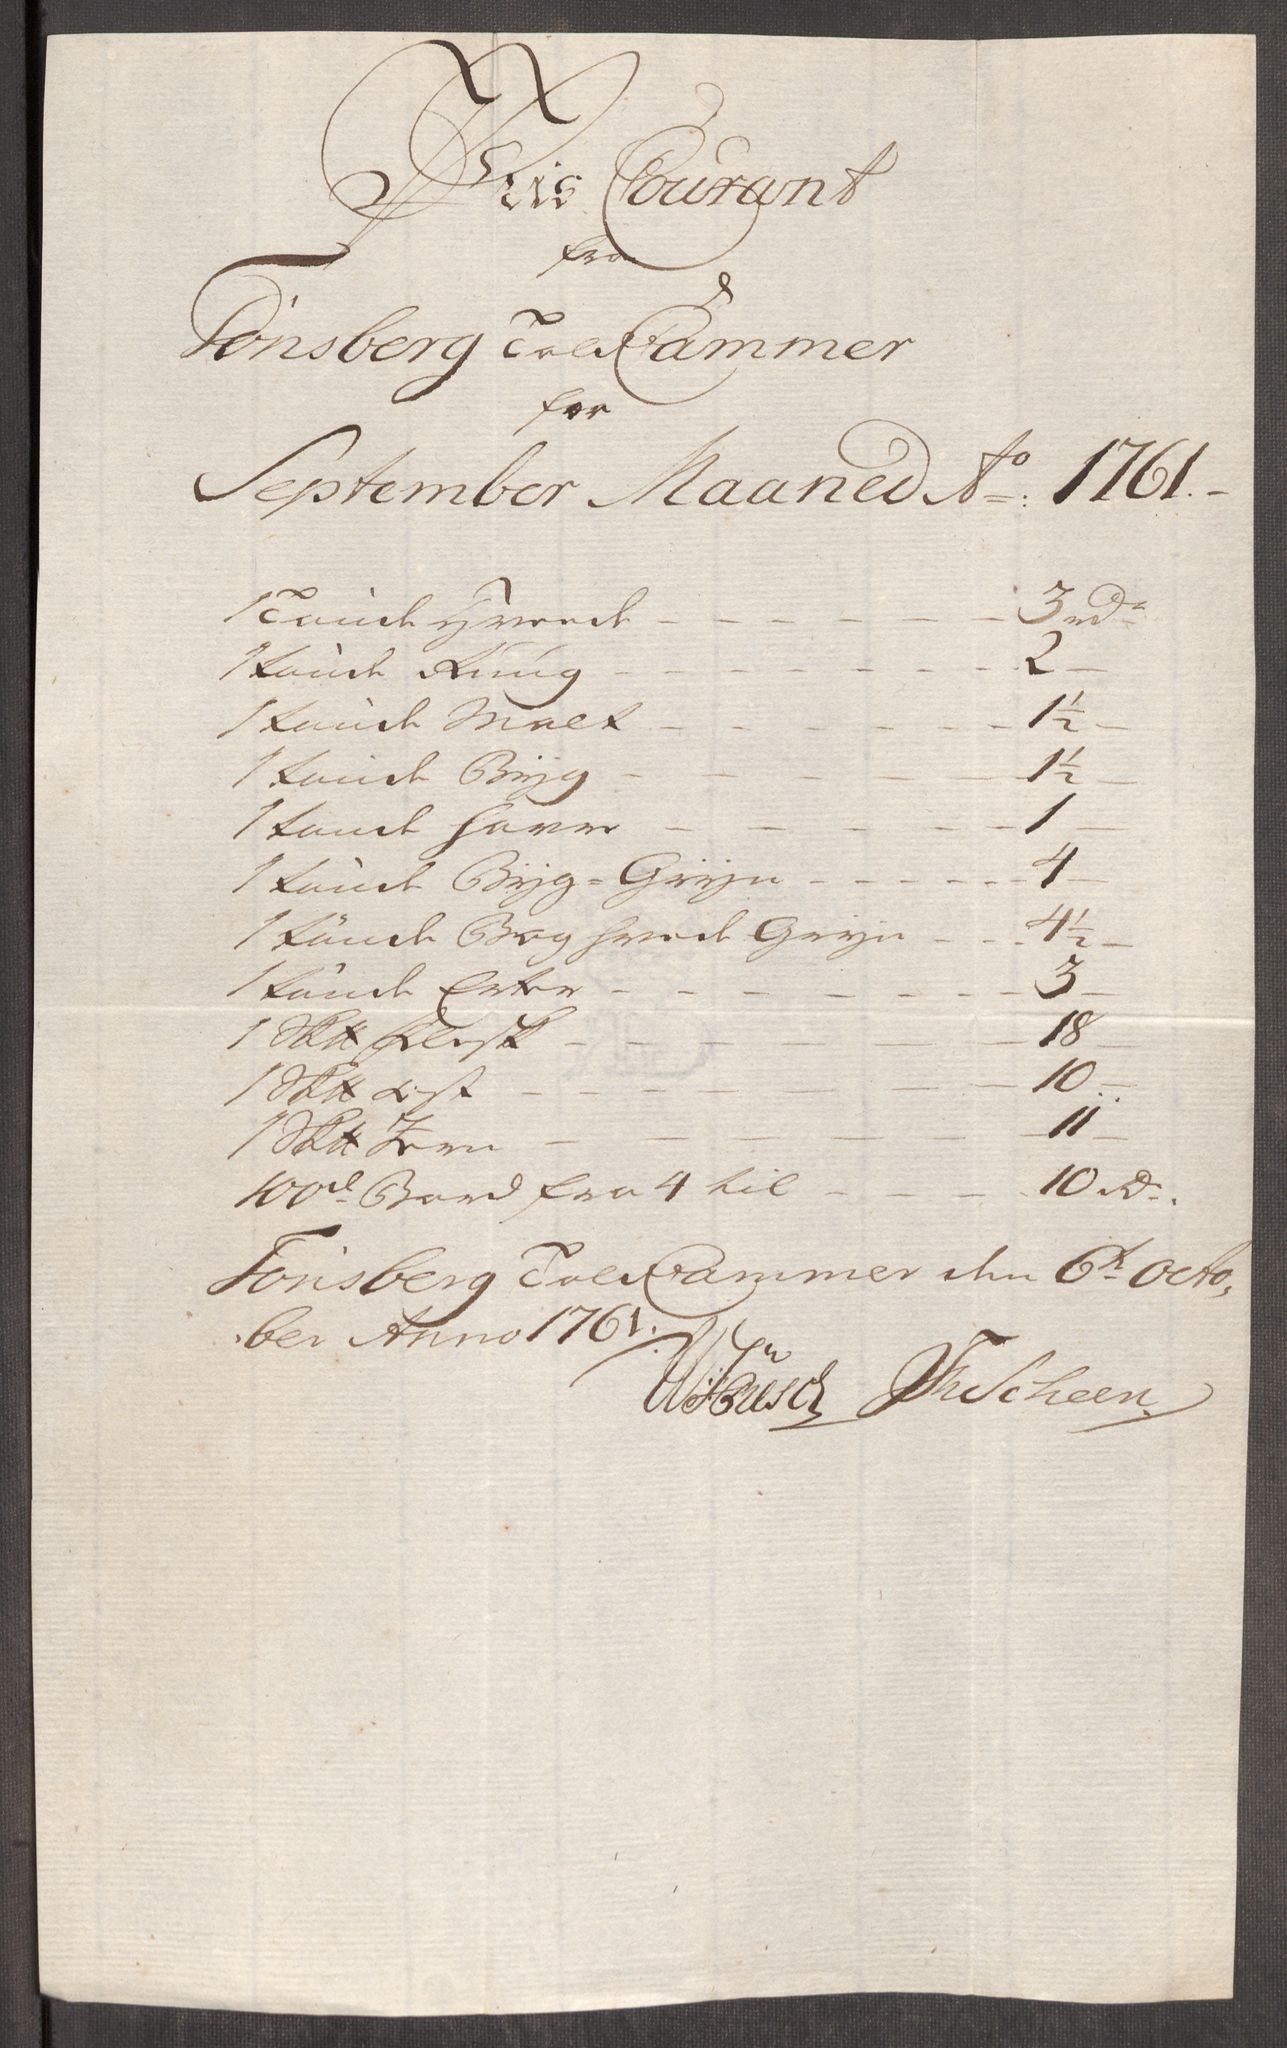 Pris Courant
fra
Tönsberg Told Cammer
for
September Maaned Ao: 1761.-
1 Tönde Hvede - - - - - - 3 rdr
1 tönde Rüug - - - - - - 2 -
1 tönde Malt - - - - - 1½ -
1 tönde Byg - - - - - 1½ -
1 tönde havre - - - - - 1 -
1 tönde Byg=Gryn - - - - - 4 -
1 tönde Boghvede Gryn - - - 4½ -
1 tönde Erter - - - - - - 3 -
1 Sk℔ flesk - - - - - - 18 -
1 Sk℔ ost - - - - - - 10 -
1 Sk℔ Jern - - - - - - 11 -
100de Bord fra 4 til - - - 10 Rdr.
Tönsberg Told Cammer den 6te Octo-
ber Anno 1761.
Scheen